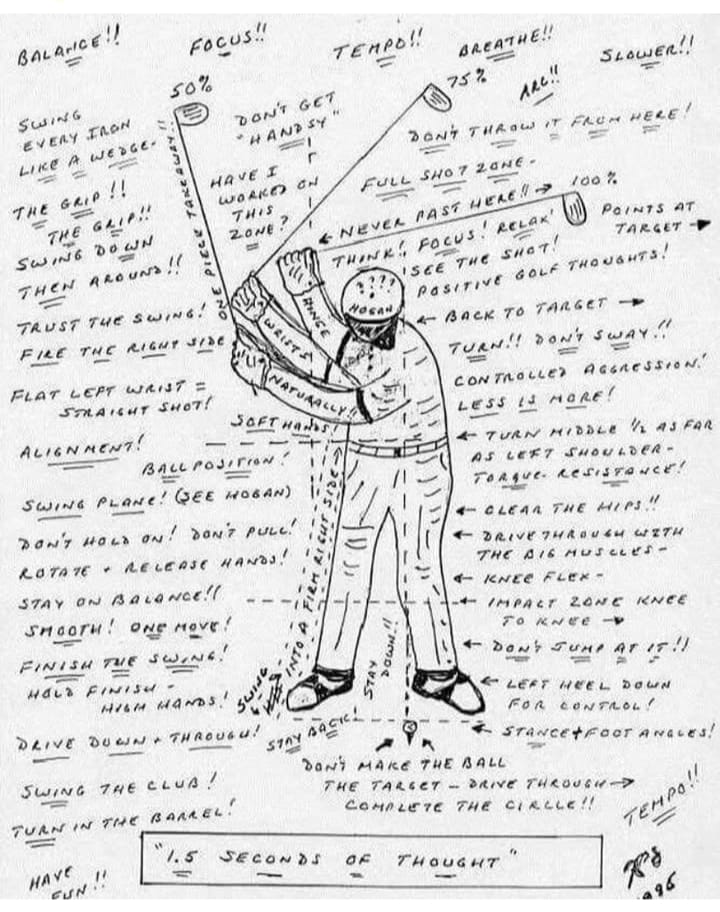 BALANCE!!
FOCUS!!
TEMPO!!
BREATHE!!
SLOWER!!
50%
75%
ARC!!
SWING
EVERY IRON
LIKE A WEDGE-
DON'T GET
"HANDSY"
DON'T THROW IT FROM HERE!
ONE PIECE TAKEAWAY!!
HAVE I
WORKED ON
THIS
ZONE?
FULL SHOT ZONE-
100%
THE GRIP!!
THE GRIP!!
← NEVER PAST HERE!! →
POINTS AT
TARGET →
SWING DOWN
THEN AROUND!!
THINK! FOCUS! RELAX!
SEE THE SHOT!
POSITIVE GOLF THOUGHTS!
????
HOGAN
TRUST THE SWING!
FIRE THE RIGHT SIDE
HINGE
WRISTS
NATURALLY!!
← BACK TO TARGET →
TURN!! DON'T SWAY!!
FLAT LEFT WRIST =
STRAIGHT SHOT!
CONTROLLED AGGRESSION!
LESS IS MORE!
SOFT HANDS!
ALIGNMENT!
BALL POSITION!
← TURN MIDDLE 1/2 AS FAR
AS LEFT SHOULDER-
TORQUE- RESISTANCE!
SWING PLANE! (SEE HOGAN)
← CLEAR THE HIPS!!
DON'T HOLD ON! DON'T PULL!
ROTATE + RELEASE HANDS!
← DRIVE THROUGH WITH
THE BIG MUSCLES-
← KNEE FLEX-
STAY ON BALANCE!!
← IMPACT ZONE KNEE
TO KNEE →
SMOOTH! ONE MOVE!
INTO A FIRM RIGHT SIDE
STAY
DOWN!!
← DON'T JUMP AT IT!!
FINISH THE SWING!
HOLD FINISH-
HIGH HANDS!
SWING
← LEFT HEEL DOWN
FOR CONTROL!
STAY BACK!
← STANCE + FOOT ANGLES!
DRIVE DOWN + THROUGH!
DON'T MAKE THE BALL
THE TARGET - DRIVE THROUGH →
COMPLETE THE CIRCLLE!!
SWING THE CLUB!
TURN IN THE BARREL!
TEMPO!!
"1.5 SECONDS OF THOUGHT"
HAVE
FUN!!